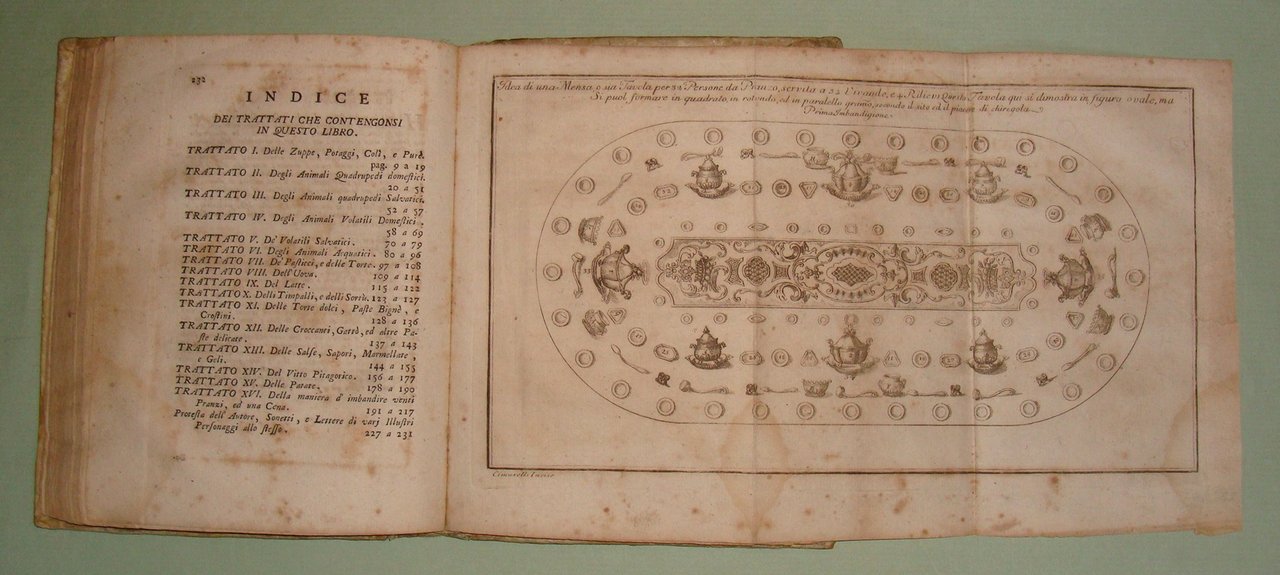 232
INDICE
DEI TRATTATI CHE CONTENGONSI
IN QUESTO LIBRO.
TRATTATO I. Delle Zuppe, Potaggi, Colì, e Purè.
pag. 9 a 19
TRATTATO II. Degli Animali Quadrupedi domestici.
20 a 51
TRATTATO III. Degli Animali quadrupedi Salvatici.
52 a 57
TRATTATO IV. Degli Animali Volatili Domestici.
58 a 69
TRATTATO V. De' Volatili Salvatici. 70 a 79
TRATTATO VI. Degli Animali Acquatici. 80 a 96
TRATTATO VII. De' Pasticci, e delle Torte. 97 a 108
TRATTATO VIII. Dell'Uova. 109 a 114
TRATTATO IX. Del Latte. 115 a 122
TRATTATO X. Delli Timpalli, e delli Sortù. 123 a 127
TRATTATO XI. Delle Torte dolci, Paste Bignè, e
Crostini. 128 a 136
TRATTATO XII. Delle Croccanti, Gattò, ed altre Pa-
ste delicate. 137 a 143
TRATTATO XIII. Delle Salse, Sapori, Marmellate,
e Geli. 144 a 155
TRATTATO XIV. Del Vitto Pitagorico. 156 a 177
TRATTATO XV. Delle Patate. 178 a 190
TRATTATO XVI. Della maniera d' imbandire venti
Pranzi, ed una Cena. 191 a 217
Protesta dell'Autore, Sonetti, e Lettere di varj Illustri
Personaggi allo stesso. 227 a 231
Idea di una Mensa o sia Tavola per 32 Persone da Pranzo, servita a 32 Vivande, e 4 Rilievi Questa Tavola qui si dimostra in figura ovale, ma
Si puol formare in quadrato, in rotondo, ed in paralello gramo, secondo il sito ed il piacere di chi regola
Prima Imbandigione.
Cimarelli Incise